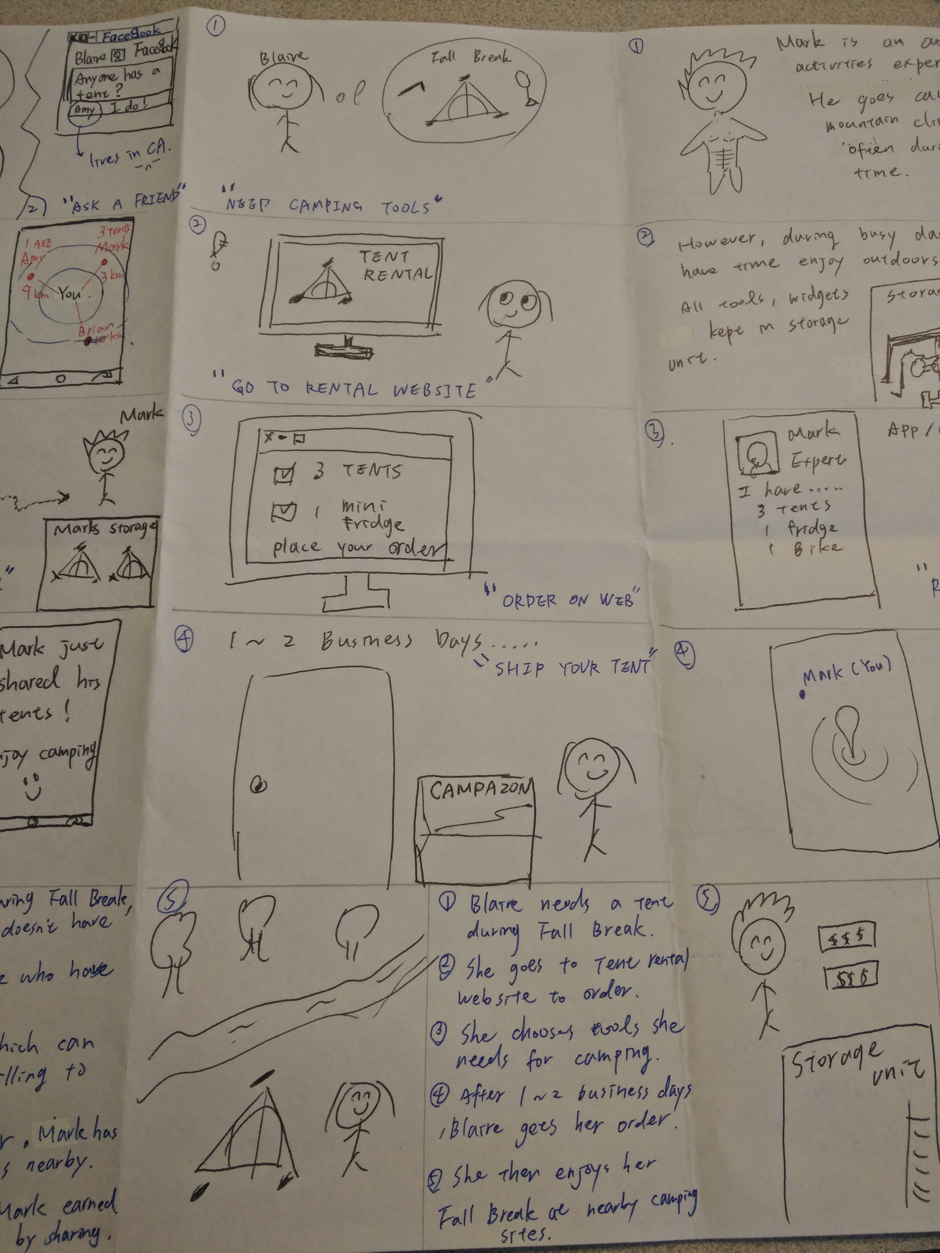 FaceBook
Blaire FaceBook
Anyone has a
tent?
Amy I do!
lives in CA.
2) "ASK A FRIEND"
1 AXE
Amy
3 Tents
Mark
3 km
9 km
You.
Brian
Mark
Marks storage
Mark just
shared his
tents!
joy camping
ring Fall Break,
doesn't have
who have
hich can
lling to
r. Mark has
s nearby.
Mark earned
by sharing.
①
Blaire
Fall Break
"NEED CAMPING TOOLS"
②
TENT
RENTAL
"GO TO RENTAL WEBSITE"
③
x - □
3 TENTS
1 mini
fridge
place your order
"ORDER ON WEB"
④ 1 ~ 2 Business Days.....
"SHIP YOUR TENT"
CAMPAZON
⑤
① Blaire needs a Tent
during Fall Break.
② She goes to Tent rental
website to order.
③ She chooses tools she
needs for camping.
④ After 1 ~ 2 business days
, Blaire gets her order.
⑤ She then enjoys her
Fall Break at nearby camping
sites.
①
Mark is an
activities exper
He goes
mountain
often
time.
②
However, during busy
have time enjoy outdoors
All tools, widgets
kept in storage
unit.
Storag
③.
Mark
Expert
I have.....
3 Tents
1 fridge
1 Bike
APP /
"R
④
Mark (You)
⑤
$$$
$$$
Storage
unit